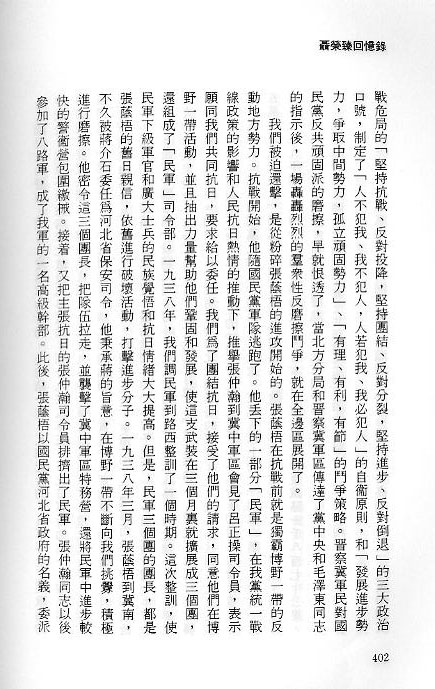 聶榮臻回憶錄
戰危局的「堅持抗戰、反對投降，堅持團結、反對分裂，堅持進步、反對倒退」的三大政治
口號，制定了「人不犯我、我不犯人，人若犯我、我必犯人」的自衛原則，和「發展進步勢
力，爭取中間勢力，孤立頑固勢力」、「有理、有利，有節」的鬥爭策略。晉察冀軍民對國
民黨反共頑固派的磨擦，早就恨透了，當北方分局和晉察冀軍區傳達了黨中央和毛澤東同志
的指示後，一場轟轟烈烈的羣衆性反磨擦鬥爭，就在全邊區展開了。
我們被迫還擊，是從粉碎張蔭梧的進攻開始的。張蔭梧在抗戰前就是獨霸博野一帶的反
動地方勢力。抗戰開始，他隨國民黨軍隊逃跑了。他丟下的一部分「民軍」，在我黨統一戰
線政策的影響和人民抗日熱情的推動下，推擧張仲瀚到冀中軍區會見了呂正操司令員，表示
願同我們共同抗日，要求給以委任。我們爲了團結抗日，接受了他們的請求，同意他們在博
野一帶活動，並且抽出力量幫助他們鞏固和發展，使這支武裝在三個月裏就擴展成三個團，
還組成了「民軍」司令部。一九三八年，我們調民軍到路西整訓了一個時期。這次整訓，使
民軍下級軍官和廣大士兵的民族覺悟和抗日情緒大大提高。但是，民軍三個團的團長，都是
張蔭梧的舊日親信，依舊進行破壞活動，打擊進步分子。一九三八年三月，張蔭梧到冀南，
不久被蔣介石委任爲河北省保安司令，他秉承蔣的旨意，在博野一帶不斷向我們挑釁，積極
進行磨擦。他密令這三個團長，把隊伍拉走，並襲擊了冀中軍區特務營，還將民軍中進步較
快的警衛營包圍繳械。接着，又把主張抗日的張仲瀚司令員排擠出了民軍。張仲瀚同志以後
參加了八路軍，成了我軍的一名高級幹部。此後，張蔭梧以國民黨河北省政府的名義，委派
402